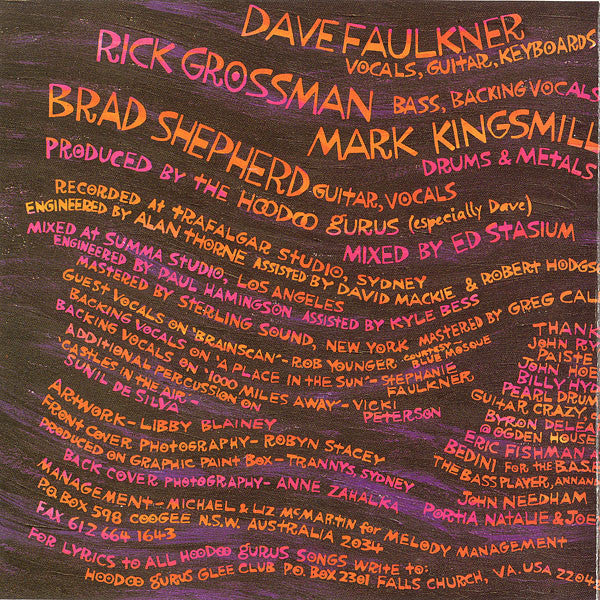 DAVE FAULKNER
VOCALS, GUITAR, KEYBOARDS
RICK GROSSMAN BASS, BACKING VOCALS
BRAD SHEPHERD GUITAR, VOCALS
MARK KINGSMILL
DRUMS & METALS
PRODUCED BY THE HOODOO GURUS (especially Dave)
RECORDED AT TRAFALGAR STUDIO, SYDNEY
ENGINEERED BY ALAN THORNE ASSISTED BY DAVID MACKIE & ROBERT HODGSO
MIXED BY ED STASIUM
MIXED AT SUMMA STUDIO, LOS ANGELES
ENGINEERED BY PAUL HAMINGSON ASSISTED BY KYLE BESS
MASTERED BY STERLING SOUND, NEW YORK MASTERED BY GREG CAL
GUEST VOCALS ON 'BRAINSCAN' - ROB YOUNGER, COURTESY BLUE MOSQUE
BACKING VOCALS ON 'A PLACE IN THE SUN' - STEPHANIE FAULKNER
BACKING VOCALS ON '1000 MILES AWAY' - VICKI PETERSON
ADDITIONAL PERCUSSION ON
'CASTLES IN THE AIR' -
SUNIL DE SILVA
ARTWORK - LIBBY BLAINEY
FRONT COVER PHOTOGRAPHY - ROBYN STACEY
PRODUCED ON GRAPHIC PAINT BOX - TRANNYS, SYDNEY
BACK COVER PHOTOGRAPHY - ANNE ZAHALKA
MANAGEMENT - MICHAEL & LIZ McMARTIN for MELODY MANAGEMENT
P.O. BOX 598 COOGEE N.S.W. AUSTRALIA 2034
FAX 612 664 1643
FOR LYRICS TO ALL HOODOO GURUS SONGS WRITE TO:
HOODOO GURUS GLEE CLUB P.O. BOX 2301 FALLS CHURCH, VA. USA 2204
THANK
JOHN RY
PAISTE
JOHN HOE
BILLY HYD
PEARL DRUM
GUITAR CRAZY,
BYRON DELEA
@ OGDEN HOUSE
ERIC FISHMAN
BEDINI FOR THE B.A.S.E
THE BASS PLAYER, ANNAN
JOHN NEEDHAM
PORTIA NATALIE & JOE